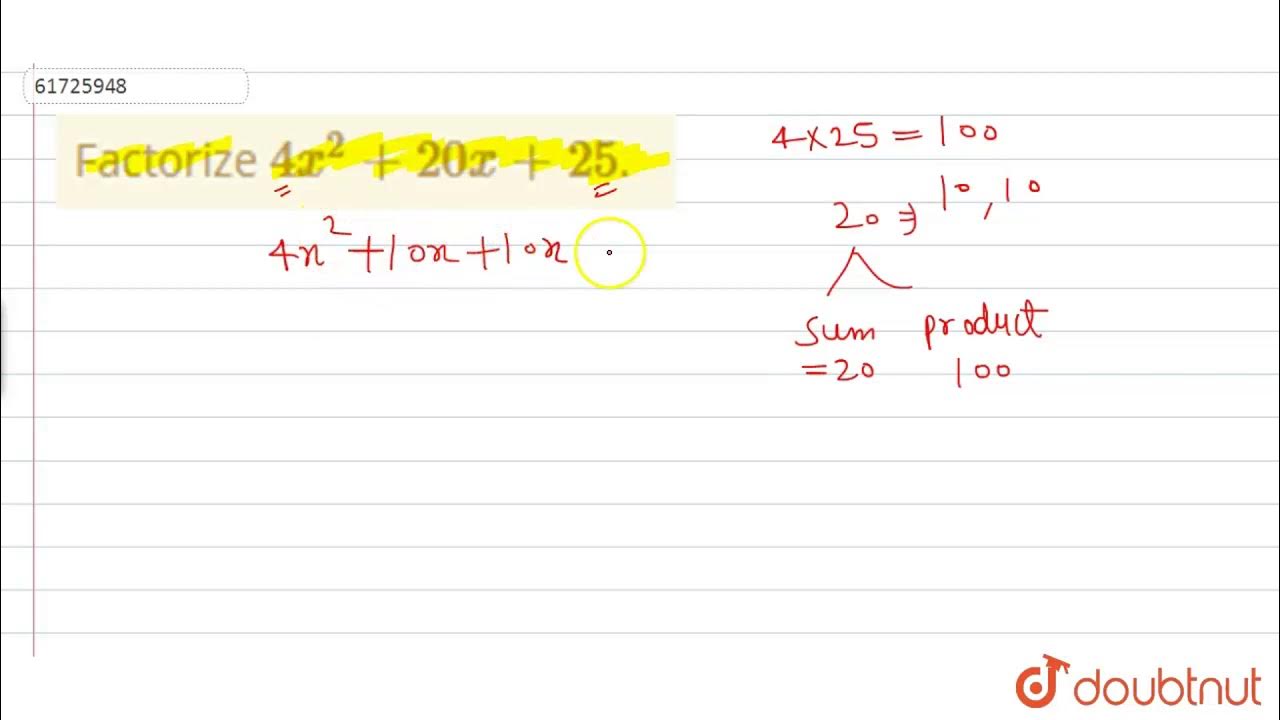 61725948
Factorize 4x² + 20x + 25.
4x² + 10x + 10x
4×25 = 100
20 ∋ 10, 10
sum product
=20 100
doubtnut